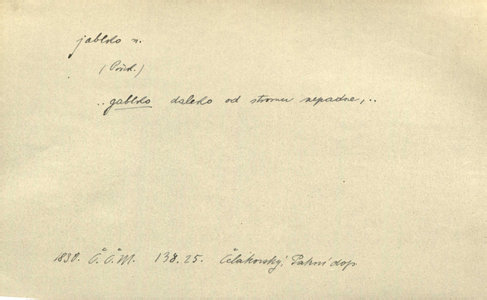 jablko n.
.. gablko daleko od stromu nepadne, ..
1830. Č.Č.M. 138.25. Čelakovský,